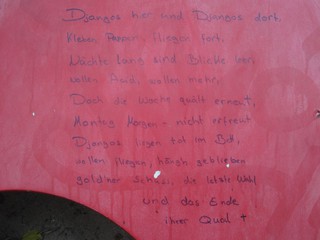 Djangos hier und Djangos dort.
Kleben Pepper, fliegen fort.
Nächte lang sind Blicke leer,
wollen Acid, wollen mehr.
Doch die Woche quält erneut,
Montag Morgen - nicht erfreut
Djangos liegen tot im Bett,
wollen fliegen, high geblieben
goldner Schuss, die letzte Wahl
und das Ende
ihrer Qual †